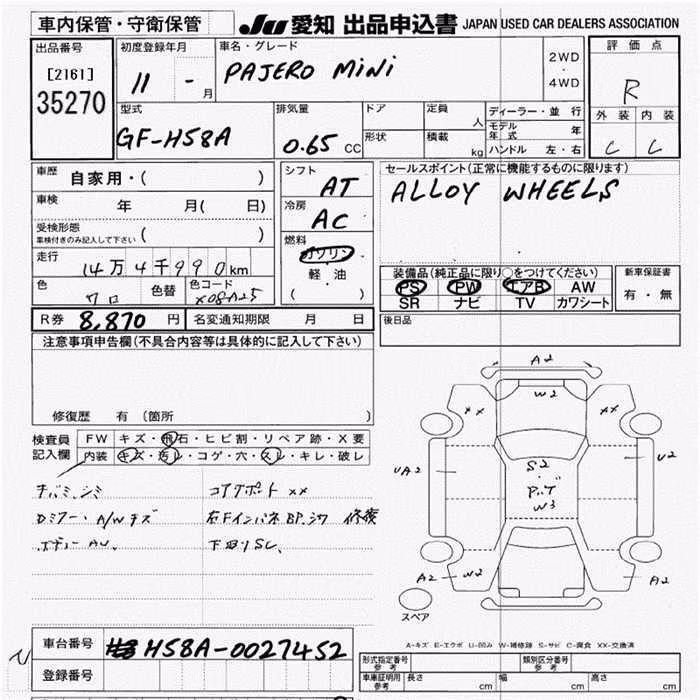 車内保管・守衛保管
JU 愛知 出品申込書 JAPAN USED CAR DEALERS ASSOCIATION
出品番号
[2161]
35270
初度登録年月
11 - 月
車名・グレード
PAJERO MINI
2WD
・
4WD
評価点
R
外装 内装
C C
型式
GF-H58A
排気量
0.65 CC
ドア
定員
人
形状
積載
kg
ディーラー・並行
モデル年式 年
ハンドル 左・右
車歴 自家用・( )
車検 年 月( 日)
受検形態
車検付きのみ記入して下さい ( )
走行 14万4千990km
色 クロ
色替
色コード X08A25
シフト
AT
冷房
AC
燃料
ガソリン
軽・油
( )
セールスポイント(正常に機能するものに限ります)
ALLOY WHEELS
装備品(純正品に限り○をつけてください)
PS PW エアB AW
SR ナビ TV カワシート
新車保証書
有・無
R券 8,870 円
名変通知期限 月 日
後日品
注意事項申告欄(不具合内容等は具体的に記入して下さい)
修復歴 有 (箇所 )
検査員
記入欄
FW キズ・飛石・ヒビ割・リペア跡・X要
内装 キズ・汚レ・コゲ・穴・スレ・キレ・破レ
コアサポート XX
Dミラー・A/Wキズ
右Fインパネ BP.シワ 修復
ボディー AU.
A2
W2
XX XX
UA2 U2
S2
P.T
W3
A2 W2 A2
スペア
A-キズ E-エクボ U-凹み W-補修跡 S-サビ C-腐食 XX-交換済
車台番号 H58A-0027452
登録番号
形式指定番号
参考
類別区分番号
参考
車庫証明用
参考
長さ cm
幅 cm
高さ cm